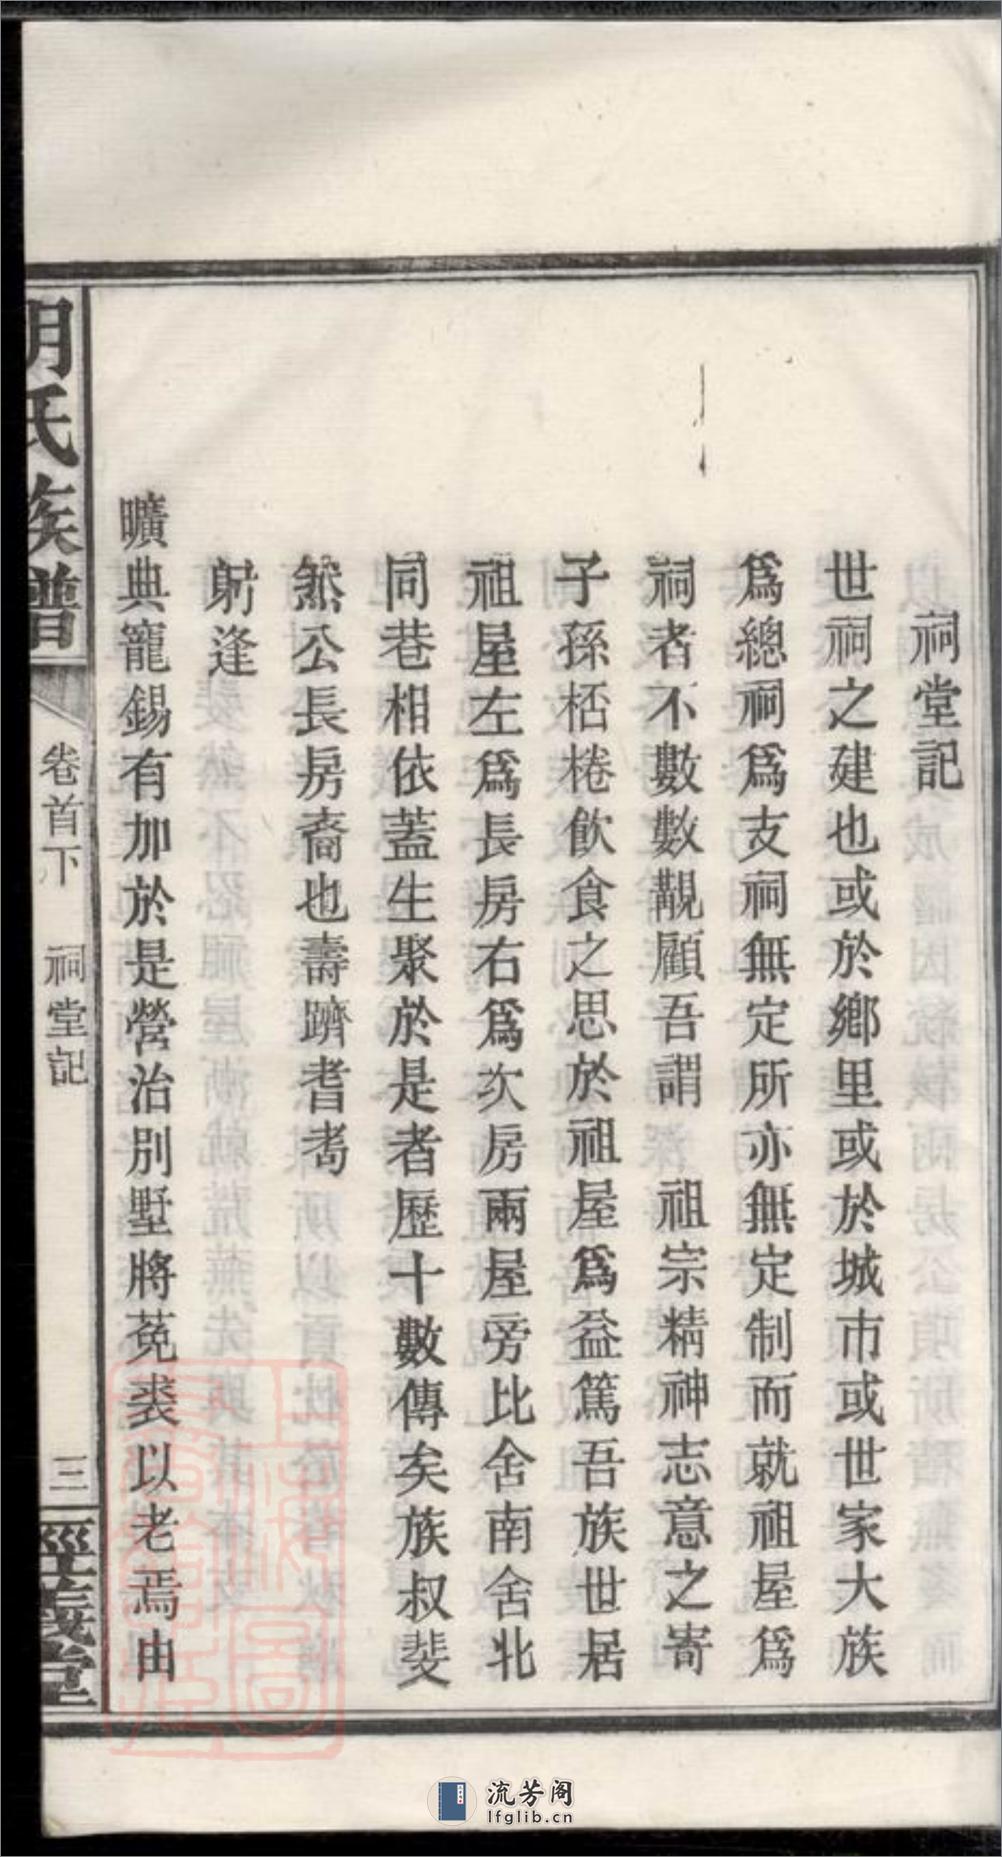 祠堂記
世祠之建也或於鄉里或於城市或世家大族
爲總祠爲支祠無定所亦無定制而就祖屋爲
祠者不數數覯顧吾謂 祖宗精神志意之寄
子孫桮棬飲食之思於祖屋爲益篤吾族世居
祖屋左爲長房右爲次房兩屋旁比舍南舍北
同巷相依蓋生聚於是者歷十數傳矣族叔斐
然公長房裔也壽躋耆耇
躬逢
曠典寵錫有加於是營治別墅將菟裘以老焉由
胡氏族譜
卷首下 祠堂記
三
經義堂
流芳阁
lfglib.cn